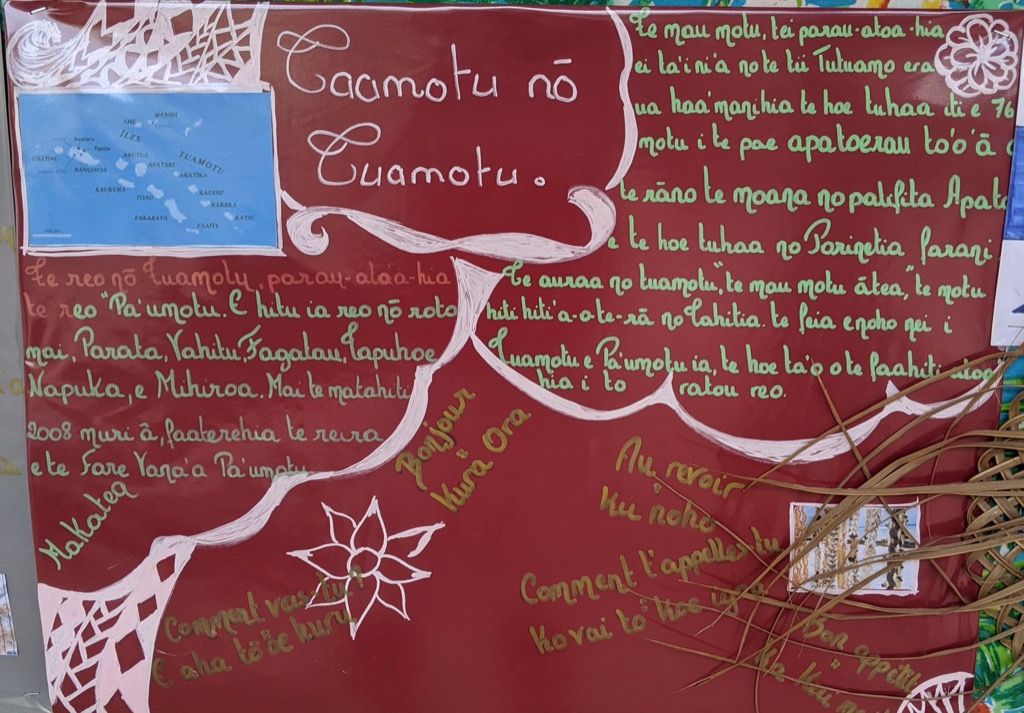 Taamotu nō
Tuamotu.
Te mau motu, tei parau-atoa-hia
ei ta'i ni'a no te tii Tutuamo era
ua haa'manihia te hoe tuhaa iti e 76
motu i te pae apatoerau to'o'ā
te rāno te moana no patifita Apato
e te hoe tuhaa no Porinetia farani
Te auraa no tuamotu, "te mau motu ātea," te motu
hiti hiti'a-o-te-rā no Tahitia. te feia e noho nei i
Tuamotu e Pa'umotu ia, te hoe ta'o o te faahiti
hia i to ratou reo.
Te reo nō Tuamotu, parau-atoa-hia
te reo "Pa'umotu. E hitu ia reo nō roto
mai, Parata, Vahitu, Fagatau, Tapuhoe
Napuka, e Mihiroa. Mai te matahiti
2008 muri ā, faaterehia te reira
e te Fare Vana'a Pa'umotu
MANIHI
AHE
ÎLES
TUAMOTU
TIKEHAU
RANGIROA
ARUTUA
APATAKI
ARATIKA
KAUKURA
TOAU
KAUEHI
RARAKA
FAKARAVA
FAAITE
KATIU
Makatea
Bonjour
Kura Ora
Au revoir
Ku noho
Comment t'appelles tu
Ko vai to koe
Comment vas-tu?
E aha tō'oe kuru
Bon appétit
Ka kai